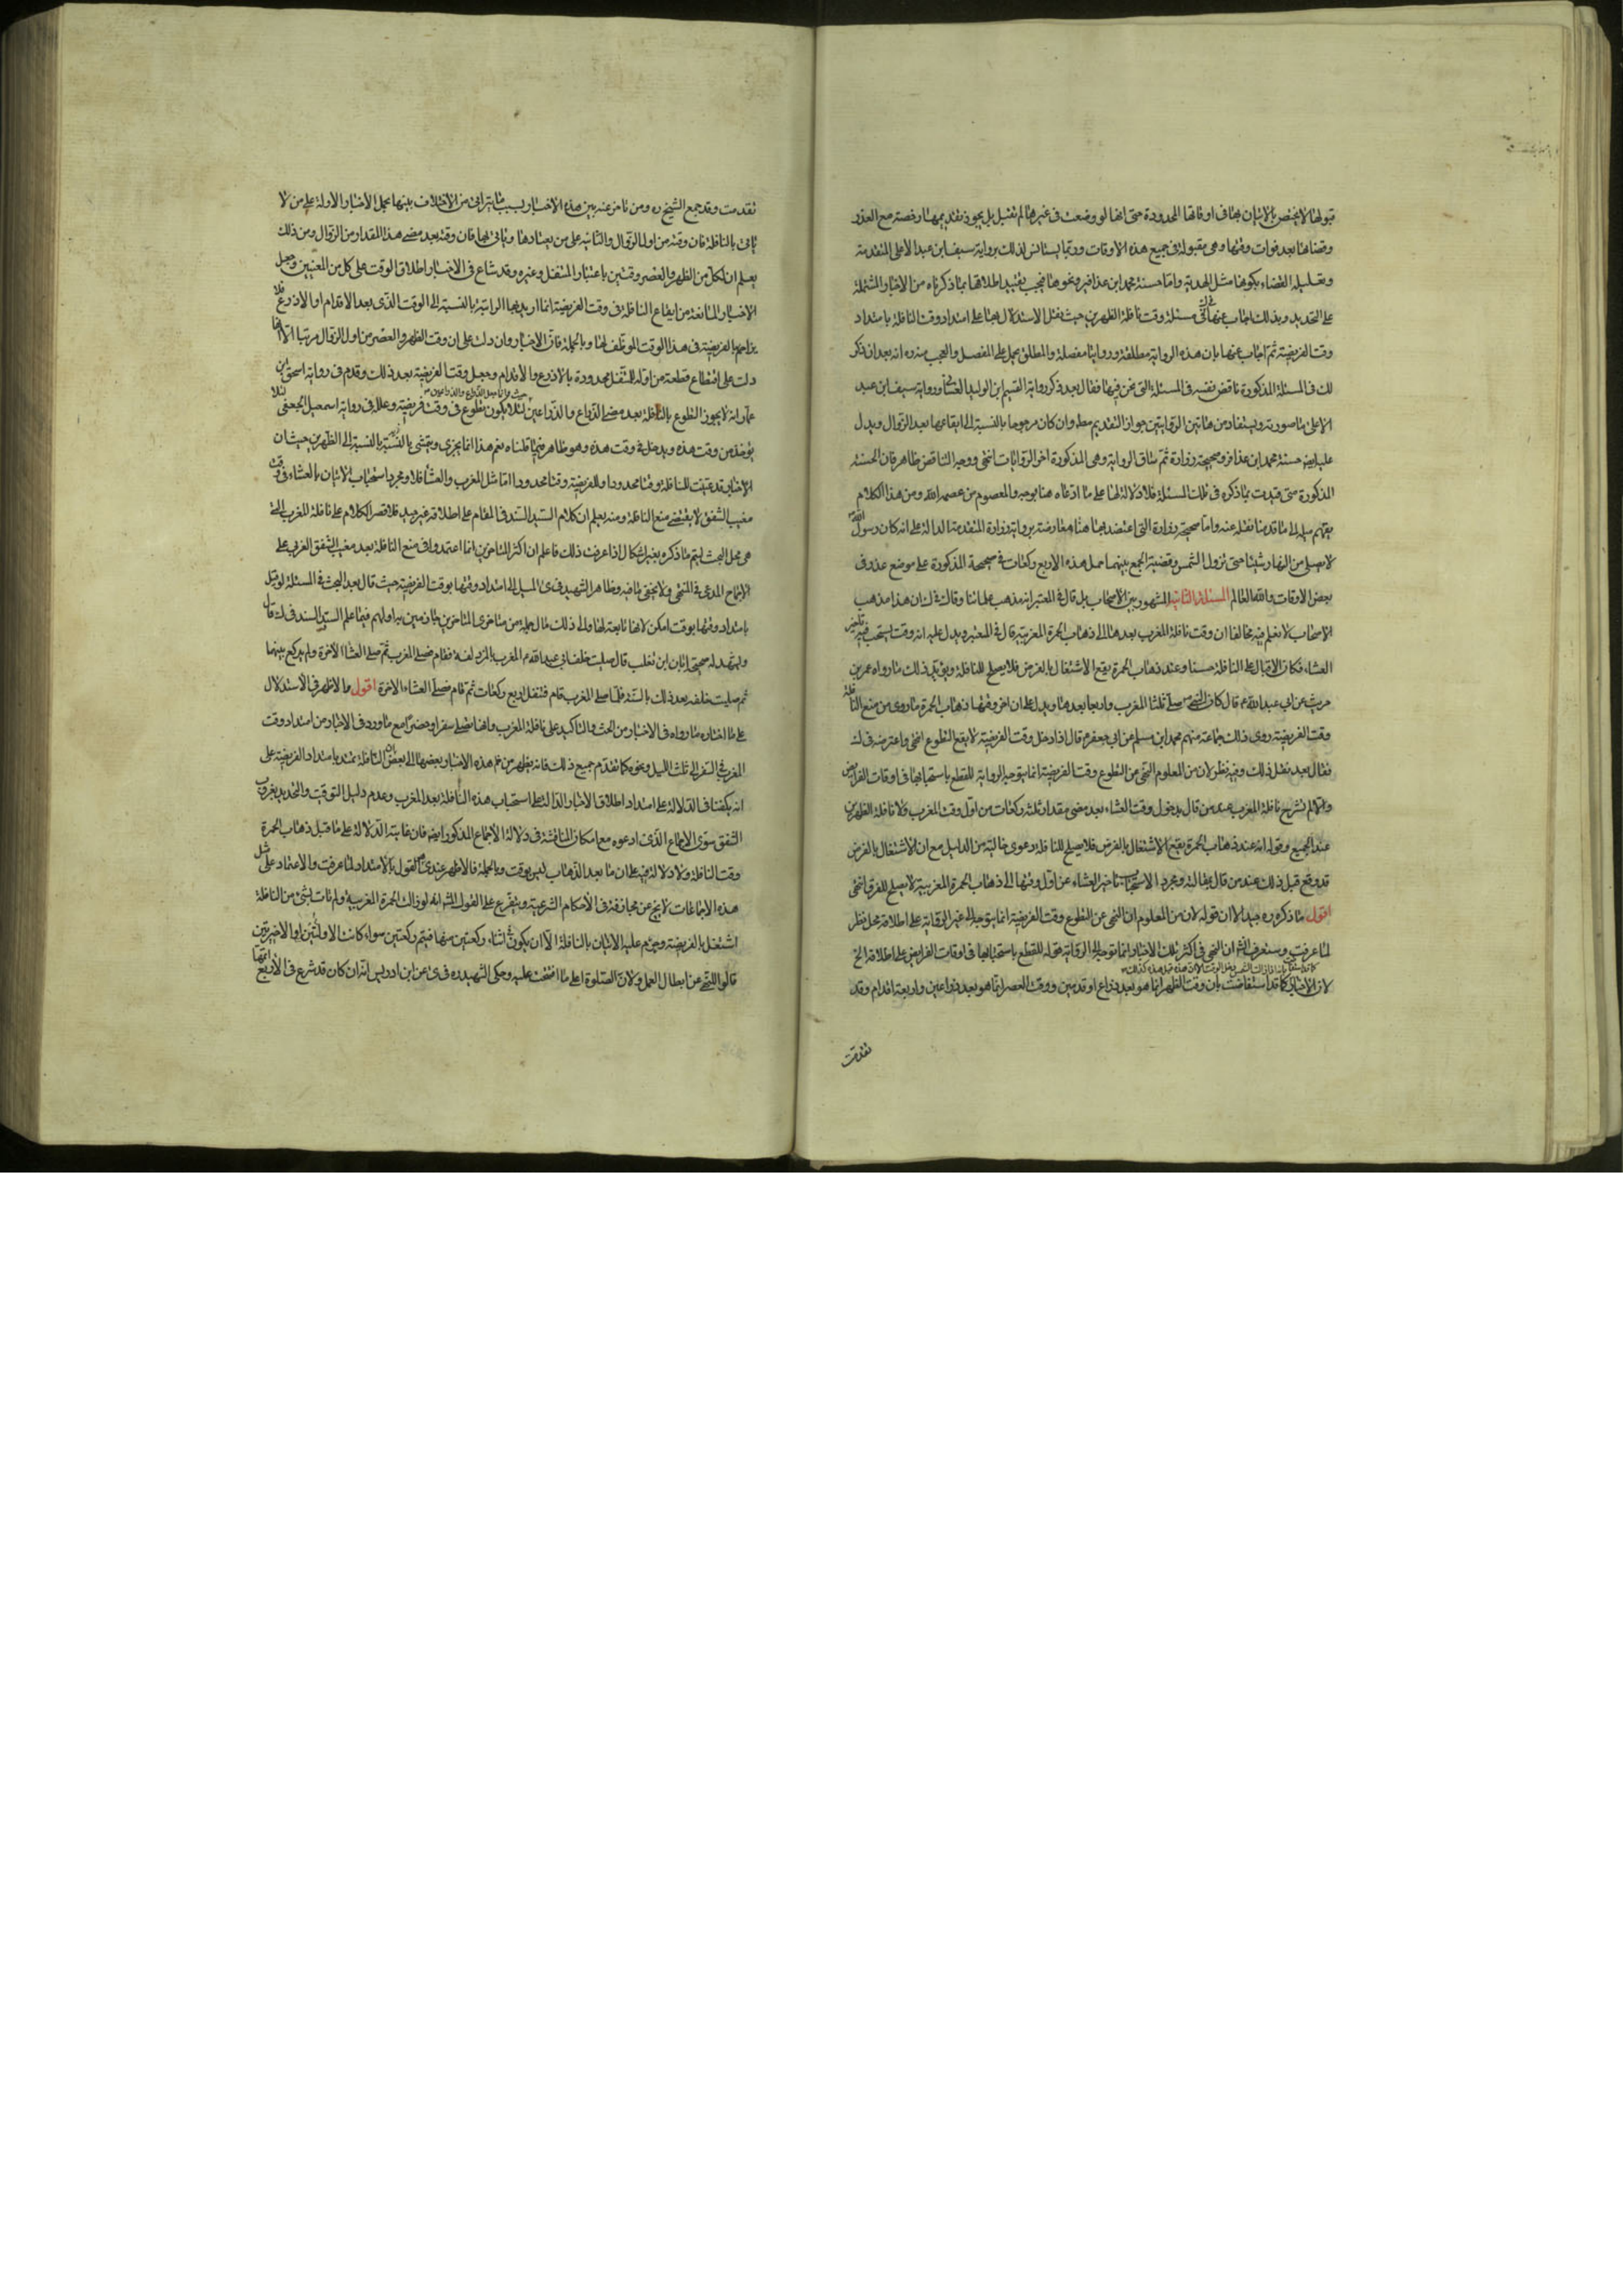 قبولها لا يختص بالاتيان بها فى اوقاتها المحدودة حتى انها لو وضعت فى غيرها لم تقبل بل يجوز تقديمها رخصة مع العذر
وقضاؤها بعد فوات وقتها وهى مقبولة فى جميع هذه الاوقات وربما يستانس لذلك برواية سيف ابن عبد الاعلى المتقدمة
وتعليله القضاء بكونها مثل الهدية واما حسنة محمد ابن عذافر ونحوها فيجب تقييد اطلاقها بما ذكرناه من الاخبار المشتملة
على التحديد وبذلك اجاب عنها فى مسئلة وقت نافلة الظهرين حيث نقل الاستدلال بها على امتداد وقت النافلة بامتداد
وقت الفريضة ثم اجاب عنها بان هذه الرواية مطلقة ورواياتنا مفصلة والمطلق يحمل على المفصل والعجب منه ره انه بعد ان ذكر
ذلك فى المسئلة المذكورة ناقض نفسه فى المسئلة التى نحن فيها فقال بعد ذكر رواية القسيم ابن الوليد الغسانى ورواية سيف ابن عبد
الاعلى ما صورته ويستفاد من هاتين الروايتين جواز التقديم مطلقا وان كان مرجوحا بالنسبة الى ايقاعها بعد الزوال ويدل
عليه ايضا حسنة محمد ابن عذافر وصحيحة زرارة ثم ساق الرواية وهى المذكورة اخر الروايات انتهى ووجه التناقض ظاهر فان الحسنة
المذكورة متى قيدت بما ذكره فى تلك المسئلة فلا دلالة لها على ما ادعاه هنا بوجه والمعصوم من عصمه الله ومن هذا الكلام
يفهم ميله الى ما قدمنا نقله عنه واما صحيحة زرارة التى اعتضد بها هنا فمعارضة برواية زرارة المتقدمة الدالة على انه كان رسول الله ص
لا يصلى من النهار شيئا حتى تزول الشمس وقضية الجمع بينهما حمل هذه الاربع ركعات فى صحيحة المذكورة على موضع عذر فى
بعض الاوقات والله العالم المسئلة الثانية المشهور بين الاصحاب بل قال فى المعتبر انه مذهب علمائنا وقال فى ك ان هذا مذهب
الاصحاب لا نعلم فيه مخالفا ان وقت نافلة المغرب بعدها الى ذهاب الحمرة المغربية قال فى المعتبر ويدل عليه انه وقت يستحب فيه تاخير
العشاء فكان الاقبال على النافلة حسنا وعند ذهاب الحمرة يقع الاشتغال بالفرض فلا يصلح للنافلة ويؤيد ذلك ما رواه عمر بن
حريث عن ابى عبد الله ع قال كان النبى ص يصلى ثلثا المغرب واربعا بعدها ويدل على ان اخر وقتها ذهاب الحمرة ما روى من منع النافلة
وقت الفريضة روى ذلك جماعة منهم محمد ابن مسلم عن ابى جعفر ع قال اذا دخل وقت الفريضة لا يقع التطوع انتهى واعترضه فى ك
فقال بعد نقل ذلك وفيه نظر لان من المعلوم النهى عن التطوع وقت الفريضة انما يتوجه الرواية للقطع باستحبابها فى اوقات الفرايض
والا لم تشرع نافلة المغرب عند من قال بدخول وقت العشاء بعد مضى مقدار ثلثة ركعات من اول وقت المغرب ولا نافلة الظهرين
عند الجميع وقوله انه عند ذهاب الحمرة يقع الاشتغال بالفرض فلا يصلح للنافلة دعوى خالية من الدليل مع ان الاشتغال بالفرض
قد وقع قبل ذلك عند من قال بمقالته ومجرد الاستحباب تاخير العشاء عن اول وقتها الى ذهاب الحمرة المغربية لا يصلح للفرق انتهى
اقول ما ذكره ره جيد الا ان قوله لان من المعلوم ان النهى عن التطوع وقت الفريضة انما يتوجه الى غير الرواتبة على اطلاقه محل نظر
لما عرفت وستعرف انشاء ان النهى فى اكثر تلك الاخبار انما توجه الى الرواتب وقوله للقطع باستحبابها فى اوقات الفرايض على اطلاقه الخ
لان الاخبار كما قد استفاضت بان وقت الظهر انما هو بعد ذراع او قدمين ووقت العصر انما هو بعد ذراعين واربعة اقدام وقد
تقدمت
تقدمت وقد جمع الشيخ ره ومن تاخر عنه بين هذه الاخبار بسبب ما يترائى من الاختلاف بينها بحمل الاخبار الاولة على من لا
ياتى بالنافلة فان وقته من اول الزوال والثانية على من يعتادها وياتى بها فان وقته بعد مضى هذا المقدار من الزوال ومن ذلك
يعلم ان لكل من الظهر والعصر وقتين باعتبار المتنفل وغيره وقد شاع فى الاخبار اطلاق الوقت على كل من المعنيين وجعل
الاخبار المانعة من ايقاع النافلة فى وقت الفريضة انما اريد بها الراتبة بالنسبة الى الوقت الذى بعد الاقدام او الاذرع فلا
يزاحم بها الفريضة فى هذا الوقت الموظف لها وبالجملة فان الاخبار وان دلت على ان وقت الظهر والعصر من اول الزوال مرتبا الا انها
دلت على اقتطاع قطعة من اوله للتنفل محدودة بالاذرع والاقدام وجعل وقت الفريضة بعد ذلك وقدم فى رواية اسحق بن
عمار انه لا يجوز التطوع بالنافلة بعد مضى الذراع والذراعين لئلا يكون تطوع فى وقت فريضة وعلله فى رواية اسمعيل الجعفى لئلا
يؤخذ من وقت هذه ويدخل فى وقت هذه وهو ظاهر فيما قلناه نعم هذا انما يجرى ويتمشى بالنسبة الى الظهرين حيث ان
الاخبار قد عينت للنافلة وقتا محدودا وللفريضة وقتا محدودا اما مثل المغرب والعشاء فلا ومجرد استحباب الاتيان بالعشاء فى وقت
مغيب الشفق لا يقتضى منع النافلة ومنه يعلم ان كلام السيد السند فى المقام على اطلاقه غير جيد فلا قصر الكلام على نافلة المغرب التى
هى محل البحث ليتم ما ذكره بغير اشكال اذا عرفت ذلك فاعلم ان اكثر المتاخرين انما اعتمدوا فى منع النافلة بعد مغيب الشفق الغربى على
الاجماع المدعى فى المنتهى ولا يخفى ما فيه وظاهر الشهيد فى كرى الميل الى امتداد وقتها بوقت الفريضة حيث قال بعد البحث فى المسئلة لو قيل
بامتداد وقتها بوقت امكن لانها تابعة لها والى ذلك مال جملة من متاخرى المتاخرين جازمين به اولهم فيما اعلم السيد السند فى ك قال
ويشهد له صحيحة ابان ابن تغلب قال صليت خلف ابى عبد الله ع المغرب بالمزدلفة فقام فصلى المغرب ثم صلى العشاء الاخرة ولم يركع بينهما
ثم صليت خلفه بعد ذلك بالسنة فلما صلى المغرب قام فتنفل باربع ركعات ثم قام فصلى العشاء الاخرة اقول والاظهر فى الاستدلال
على ما اختاره ما رواه فى الاخبار من الحث والتاكيد على نافلة المغرب وانها تصلى سفرا وحضرا مع ما ورد فى الاخبار من امتداد وقت
المغرب فى السفر الى ثلث الليل ونحوه كما تقدم جميع ذلك فانه يظهر من ضم هذه الاخبار بعضها الى بعض ان النافلة تمتد بامتداد الفريضة على
انه يكفينا فى الدلالة على امتداد اطلاق الاخبار الدالة على استحباب هذه النافلة بعد المغرب وعدم دليل التوقيت والتحديد بغروب
الشفق سوى الاجماع الذى ادعوه مع امكان المناقشة فى دلالة الاجماع المذكور ايضا فان غايته الدلالة على ما قبل ذهاب الحمرة
وقت النافلة ولا دلالة فيه على ان ما بعد الذهاب ليس بوقت وبالجملة فالاظهر عندى هو القول بالامتداد لما عرفت والاعتماد على مثل
هذه الاجماعات لا يخ عن مجازفة فى الاحكام الشرعية ويتفرع على القول المشهور انه لو زالت الحمرة المغربية ولم يات بشئ من النافلة
اشتغل بالفريضة وحرم عليه الاتيان بالنافلة الا ان يكون اثناء ركعتين منها فيتم ركعتين سواء كانت الاوليتين او الاخيرتين
قالوا للنهى عن ابطال العمل ولان الصلوة على ما افتتحت عليه وحكى الشهيد ره فى كرى عن ابن ادريس انه ان كان قد شرع فى الاربع اتمها